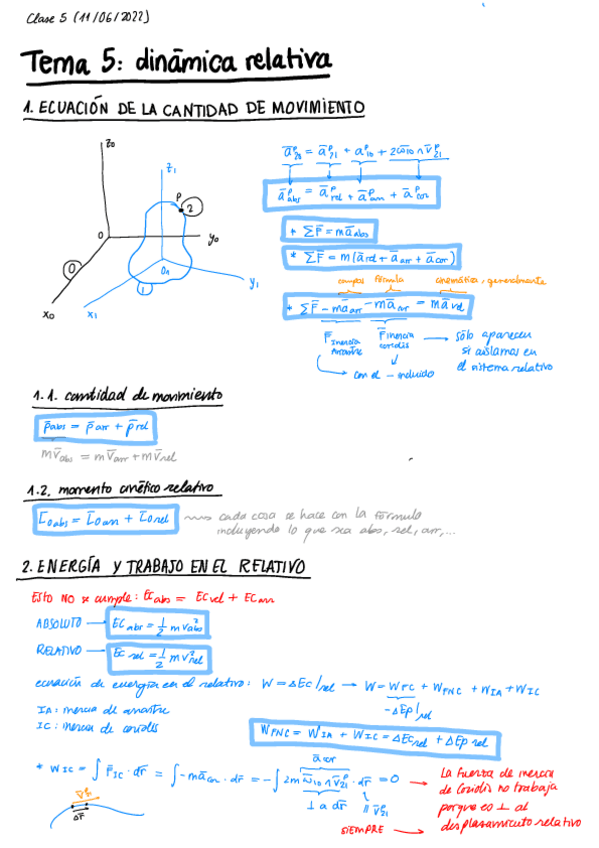 Clase 5 (11/06/2022)
Tema 5: dinámica relativa
1. ECUACIÓN DE LA CANTIDAD DE MOVIMIENTO
z₀
z₁
P
2
0
O
y₀
O₁
y₁
1
x₀
x₁
a̅ᴾ₂₀ = a̅ᴾ₂₁ + a̅ᴾ₁₀ + 2ω̅₁₀ ∧ v̅ᴾ₂₁
a̅ᴾabs = a̅ᴾrel + a̅ᴾarr + a̅ᴾcor
* ΣF̅ = m a̅abs
* ΣF̅ = m(a̅rel + a̅arr + a̅cor)
campos fórmula cinemática, generalmente
* ΣF̅ - m a̅arr - m a̅cor = m a̅rel
F̅ inercia arrastre
F̅ inercia coriolis
sólo aparecen
si aislamos en
el sistema relativo
con el - incluido
1.1. cantidad de movimiento
p̅abs = p̅arr + p̅rel
m v̅abs = m v̅arr + m v̅rel
1.2. momento cinético relativo
L̅o abs = L̅o arr + L̅o rel
cada cosa se hace con la fórmula
incluyendo lo que sea abs, rel, arr,...
2. ENERGÍA Y TRABAJO EN EL RELATIVO
ESTO NO se cumple: Ec abs = Ec rel + Ec arr
ABSOLUTO → Ec abs = ½ m v²abs
RELATIVO → Ec rel = ½ m v²rel
ecuación de energía en el relativo: W = ΔEc|rel → W = WFC + WFNC + WIA + WIC
-ΔEp|rel
IA: inercia de arrastre
IC: inercia de coriolis
WFNC + WIA + WIC = ΔEc rel + ΔEp rel
a̅cor
* WIC = ∫ F̅IC · dr̅ = ∫ -m a̅cor · dr̅ = -∫ 2m ω̅₁₀ ∧ v̅ᴾ₂₁ · dr̅ = 0
⊥ a dr̅
∥ v̅ᴾ₂₁
SIEMPRE
Δr̅
La fuerza de inercia
de Coriolis no trabaja
porque es ⊥ al
desplazamiento relativo